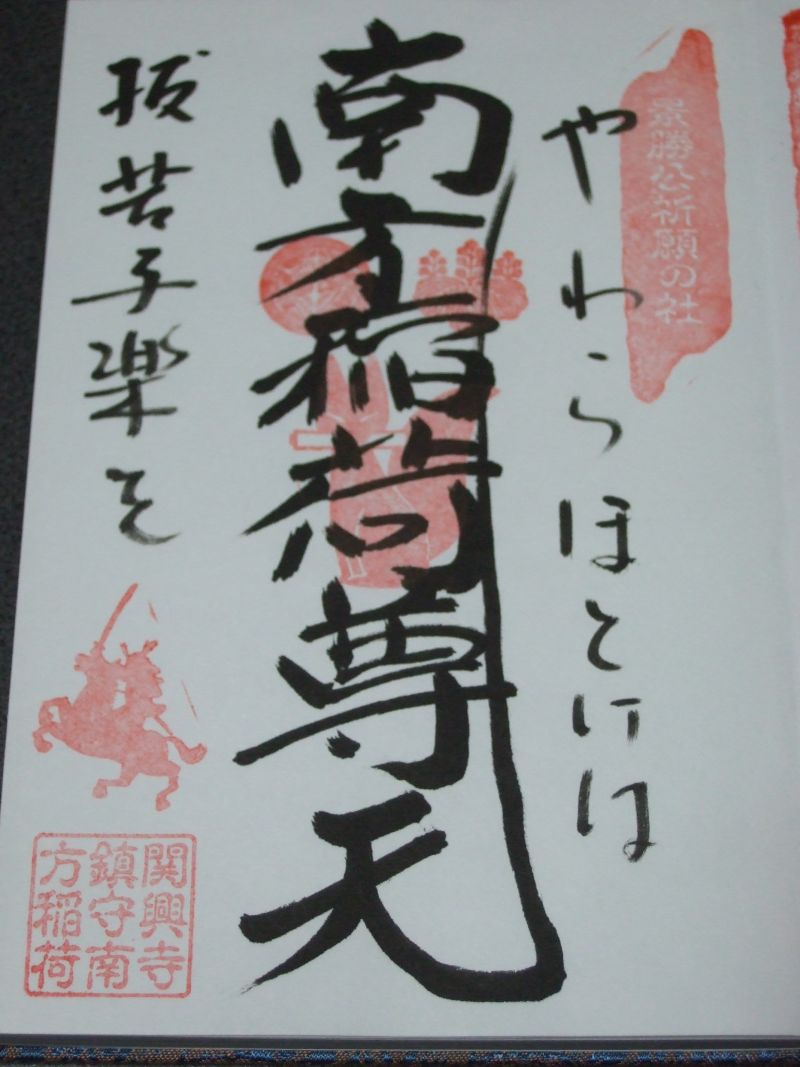 景勝公祈願の社
やわらほとけは
南方稲荷尊天
抜苦与楽そ
関興寺
鎮守南
方稲荷